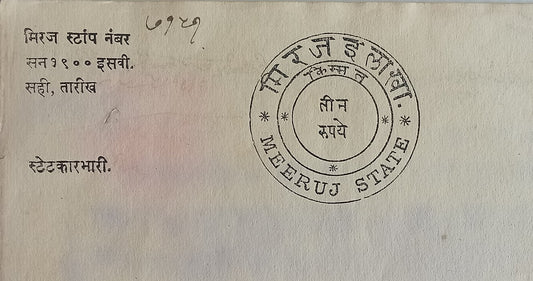 मिरज स्टांप नंबर ७१२९
सन १९०० इसवी.
सही, तारीख
स्टेटकारभारी.
मिरज इलाखा.
किम्मत
तीन
रुपये
MEERUJ STATE